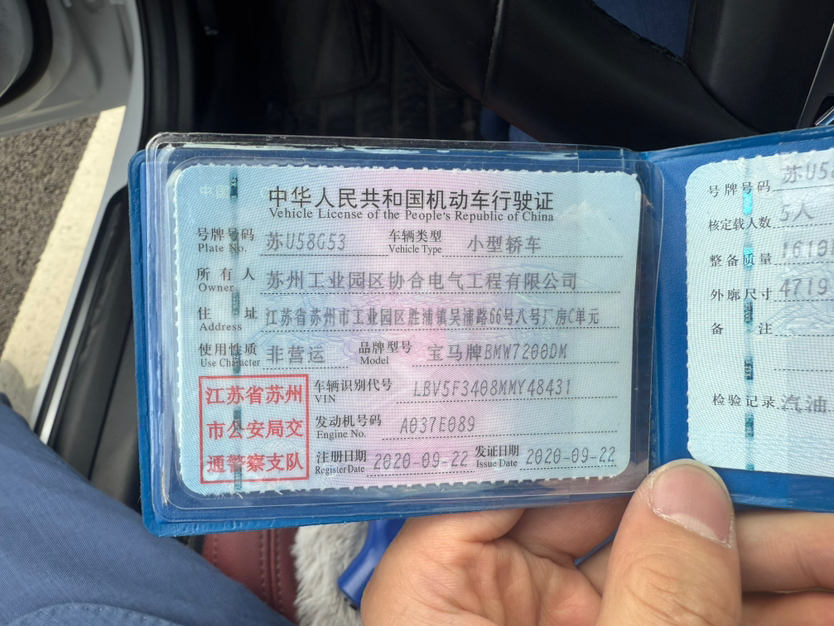 中华人民共和国机动车行驶证
Vehicle License of the People's Republic of China
号牌号码 苏U58G53 车辆类型 小型轿车
Plate No. Vehicle Type
所有人 苏州工业园区协合电气工程有限公司
Owner
住址 江苏省苏州市工业园区胜浦镇吴浦路66号八号厂房C单元
Address
使用性质 非营运 品牌型号 宝马牌BMW7200DM
Use Character Model
江苏省苏州
市公安局交
通警察支队
车辆识别代号 LBV5F3408MMY48431
VIN
发动机号码 A037E089
Engine No.
注册日期 2020-09-22 发证日期 2020-09-22
Register Date Issue Date
号牌号码 苏U58
核定载人数 5人
整备质量 1610
外廓尺寸 4719
备注
检验记录 汽油